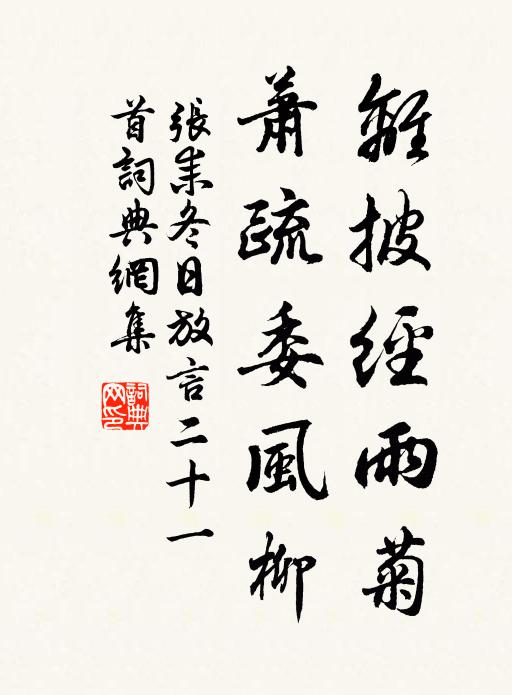 離披經雨菊
蕭疏委風柳
張耒冬日放言二十一
首詞典網集
詞典網印